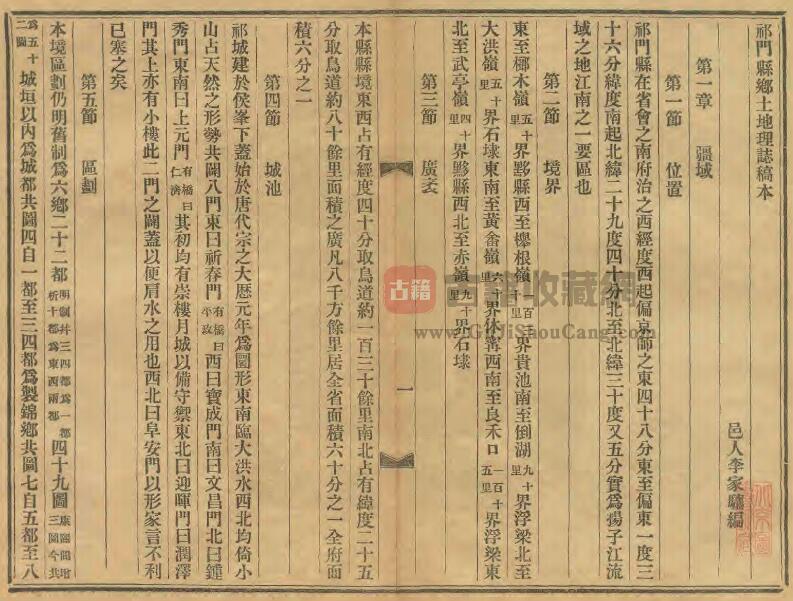 祁門縣鄉土地理誌稿本
邑人李家驤編
第一章 疆域
第一節 位置
祁門縣在省會之南府治之西經度西起偏京師之東四十八分東至偏東一度三
十六分緯度南起北緯二十九度四十分北至北緯三十度又五分實爲揚子江流
域之地江南之一要區也
第二節 境界
東至榔木嶺五十里界黟縣西至櫸根嶺一百二十里界貴池南至倒湖九十里界浮梁北至
大洪嶺五十里界石埭東南至黃畲嶺六十里界休寧西南至良禾口一百十五里界浮梁東
北至武亭嶺四十里界黟縣西北至赤嶺九十里界石埭
第三節 廣袤
本縣縣境東西占有經度四十分取鳥道約一百三十餘里南北占有緯度二十五
分取鳥道約八十餘里面積之廣凡八千方餘里居全省面積六十分之一全府面
積六分之一
第四節 城池
祁城建於侯峯下蓋始於唐代宗之大厯元年爲圜形東南臨大洪水西北均倚小
山占天然之形勢共闢八門東曰祈春門有橋曰平政西曰寶成門南曰文昌門北曰鍾
秀門東南曰上元門有橋曰仁濟其初均有崇樓月城以備守禦東北曰迎暉門曰潤澤
門其上亦有小樓此二門之闢蓋以便肩水之用也西北曰阜安門以形家言不利
已塞之矣
第五節 區劃
本境區劃仍明舊制爲六鄉二十二都明制幷三四都爲一都析十都爲東西兩都四十九圖康熙間增三圖今共
爲五十二圖城垣以内爲城都共圖四自一都至三四都爲製錦鄉共圖七自五都至八
一
古籍
古籍收藏網
www.GuJiShouCang.com